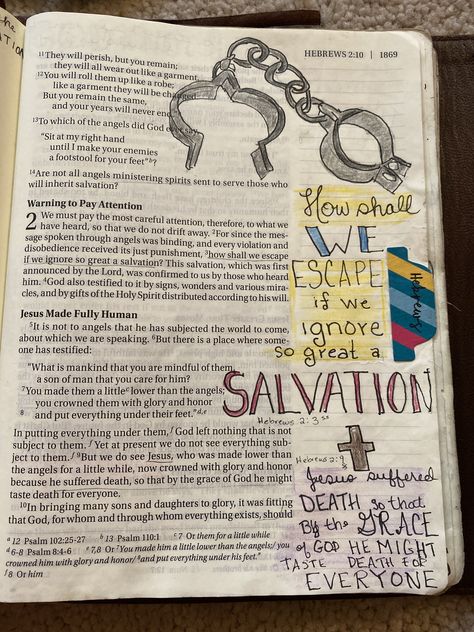 the
HEBREWS 2:10 | 1869
11They will perish, but you remain;
they will all wear out like a garment.
12You will roll them up like a robe;
like a garment they will be changed.
But you remain the same,
and your years will never end."
13To which of the angels did God ever say,
"Sit at my right hand
until I make your enemies
a footstool for your feet"b?
14Are not all angels ministering spirits sent to serve those who
will inherit salvation?
Warning to Pay Attention
2 We must pay the most careful attention, therefore, to what we
have heard, so that we do not drift away. 2For since the mes-
sage spoken through angels was binding, and every violation and
disobedience received its just punishment, 3how shall we escape
if we ignore so great a salvation? This salvation, which was first
announced by the Lord, was confirmed to us by those who heard
him. 4God also testified to it by signs, wonders and various mira-
cles, and by gifts of the Holy Spirit distributed according to his will.
Jesus Made Fully Human
5It is not to angels that he has subjected the world to come,
about which we are speaking. 6But there is a place where some-
one has testified:
"What is mankind that you are mindful of them,
a son of man that you care for him?
7You made them a little c lower than the angels;
you crowned them with glory and honor
8 and put everything under their feet."d,e
In putting everything under them,f God left nothing that is not
subject to them.f Yet at present we do not see everything sub-
ject to them.f 9But we do see Jesus, who was made lower than
the angels for a little while, now crowned with glory and honor
because he suffered death, so that by the grace of God he might
taste death for everyone.
10In bringing many sons and daughters to glory, it was fitting
that God, for whom and through whom everything exists, should
a 12 Psalm 102:25-27 b 13 Psalm 110:1 c 7 Or them for a little while
d 6-8 Psalm 8:4-6 e 7,8 Or You made him a little lower than the angels;/ you
crowned him with glory and honor/ 8and put everything under his feet."
f 8 Or him
How shall
WE
ESCAPE
if we
ignore
so great a
SALVATION
Hebrews 2:3
Hebrews
Hebrews 2:9
Jesus suffered
DEATH so that
By the GRACE
of GOD HE MIGHT
TASTE DEATH FOR
EVERYONE